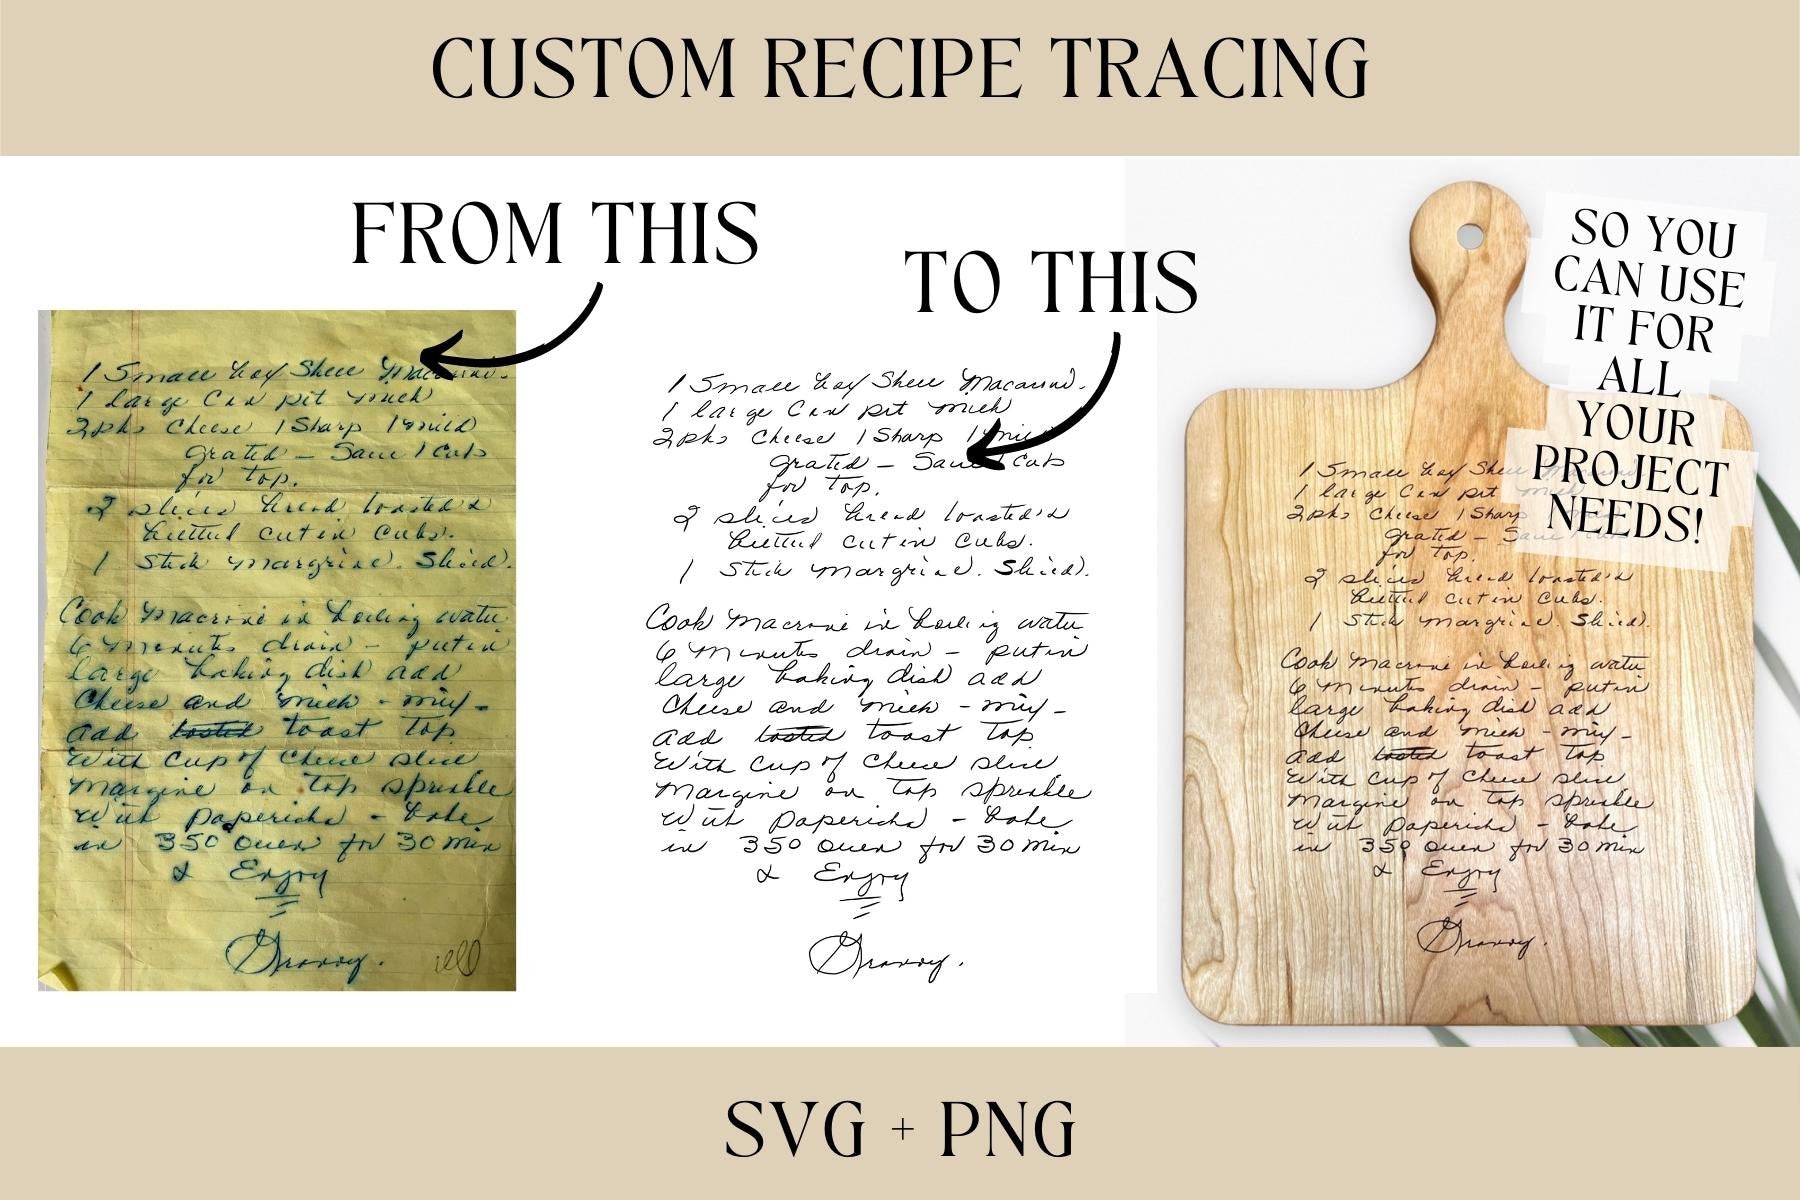 CUSTOM RECIPE TRACING
FROM THIS
1 Small box Shell Macaroni.
1 large Can pet milk
2 pks Cheese 1 Sharp 1 mild
grated - Save 1 Cup
for top.
2 slices bread toasted &
buttered cut in cubs.
1 Stick margrine. Sliced.
Cook Macroni in boiling water
6 Minutes drain - put in
large baking dish add
Cheese and milk - mix -
add tosted toast top
With cup of Cheese slice
Margine on top sprinkle
With Papericka - bake
in 350 Oven for 30 min
& Enjoy
Granny.
TO THIS
1 Small box Shell Macaroni.
1 large Can pet milk
2 pks Cheese 1 Sharp 1 mild
grated - Save 1 Cup
for top.
2 slices bread toasted &
buttered cut in cubs.
1 Stick margrine. Sliced.
Cook Macroni in boiling water
6 Minutes drain - put in
large baking dish add
Cheese and milk - mix -
add tosted toast top
With cup of Cheese slice
Margine on top sprinkle
With Papericka - bake
in 350 Oven for 30 min
& Enjoy
Granny.
SO YOU
CAN USE
IT FOR
ALL
YOUR
PROJECT
NEEDS!
1 Small box Shell
1 large Can pet milk
2 pks Cheese 1 Sharp
grated - Save 1 Cup
for top.
2 slices bread toasted &
buttered cut in cubs.
1 Stick margrine. Sliced.
Cook Macroni in boiling water
6 Minutes drain - put in
large baking dish add
Cheese and milk - mix -
add tosted toast top
With cup of Cheese slice
Margine on top sprinkle
With Papericka - bake
in 350 Oven for 30 min
& Enjoy
Granny.
SVG + PNG